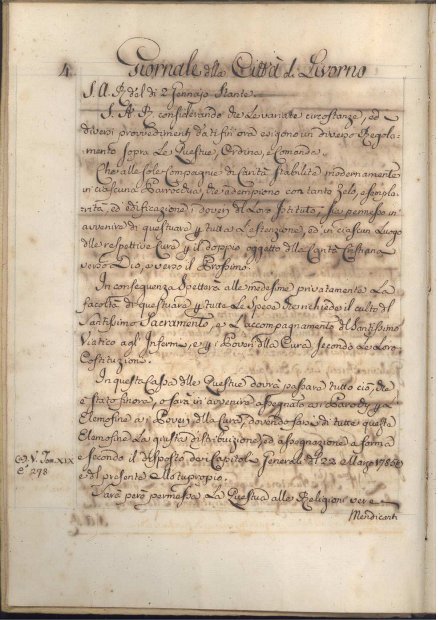 4. Giornale della Città di Livorno
S. A. R. del dì 2 Gennajo Stante.
S. A. R. considerando che le variate circostanze, ed
i diversi provvedimenti dati fin'ora esigono un diverso Regola-
mento sopra le Questue, Ordina, e Comanda.
Che alle sole Compagnie di Carità stabilite modernamente
in ciascuna Parrocchia, che adempiono con tanto zelo, esempla-
rità, ed edificazione i doveri del Loro Istituto, sia permesso in
avvenire di questuare p tutta l'estenzione, ed in ciascun Luogo
delle respettive Cure p il doppio oggetto della Carità Cristiana
verso Dio, e verso il Prossimo.
In conseguenza spetterà alle medesime privatamente la
facoltà di questuare p tutta la spesa che richiede il culto del
Santissimo Sacramento, e l'accompagnamento del Santissimo
Viatico agl' Infermi, e p i Poveri della Cura secondo le Loro
Costituzioni.
In questa Cassa delle Questue dovrà passare tutto ciò, che
è stato finora, o sarà in avvenire assegnato ai Parochi p le
Elemosine ai Poveri della Cura, dovendo farsi di tutte queste
Elemosine la giusta distribuzione, ed assegnazione a forma
e secondo il disposto dei Capitoli Generali del 22 Marzo 1785
e del presente Motuproprio.
V. Tom. XIX
278
Sarà però permessa la Questua alle Religioni vere
Mendicanti